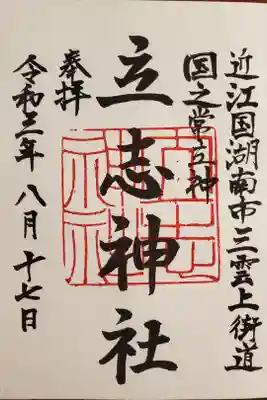 近江国湖南市三雲上街道
国之常立神
立志神社
奉拝
令和三年八月十七日